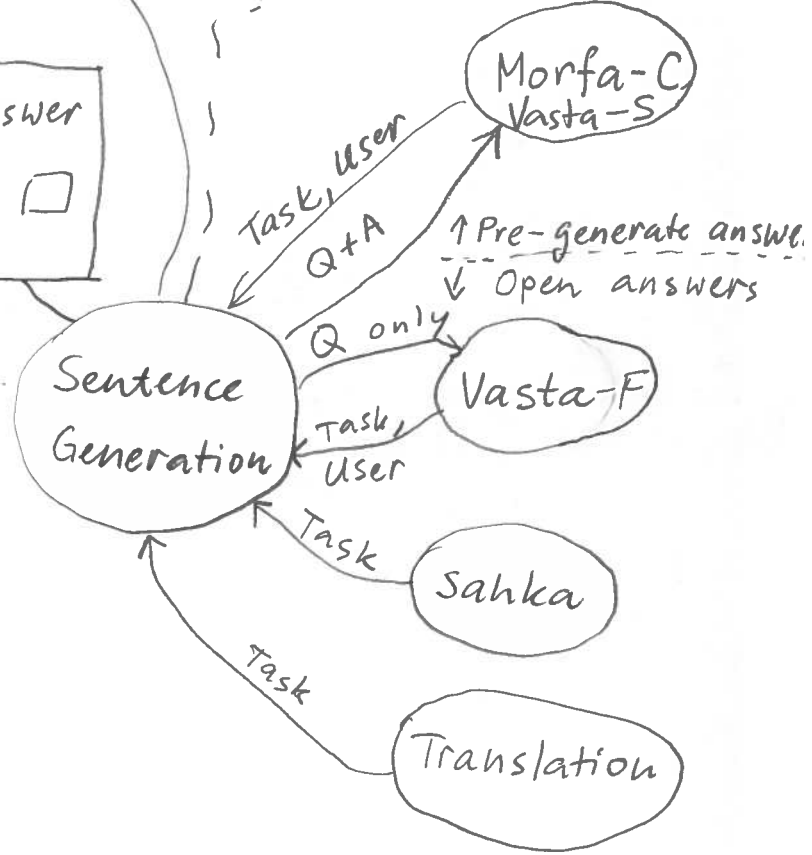 Morfa-C
Vasta-S
swer
Task, User
Q+A
↑ Pre-generate answe
↓ Open answers
Q only
Sentence
Generation
Vasta-F
Task,
User
Task
Sahka
Task
Translation